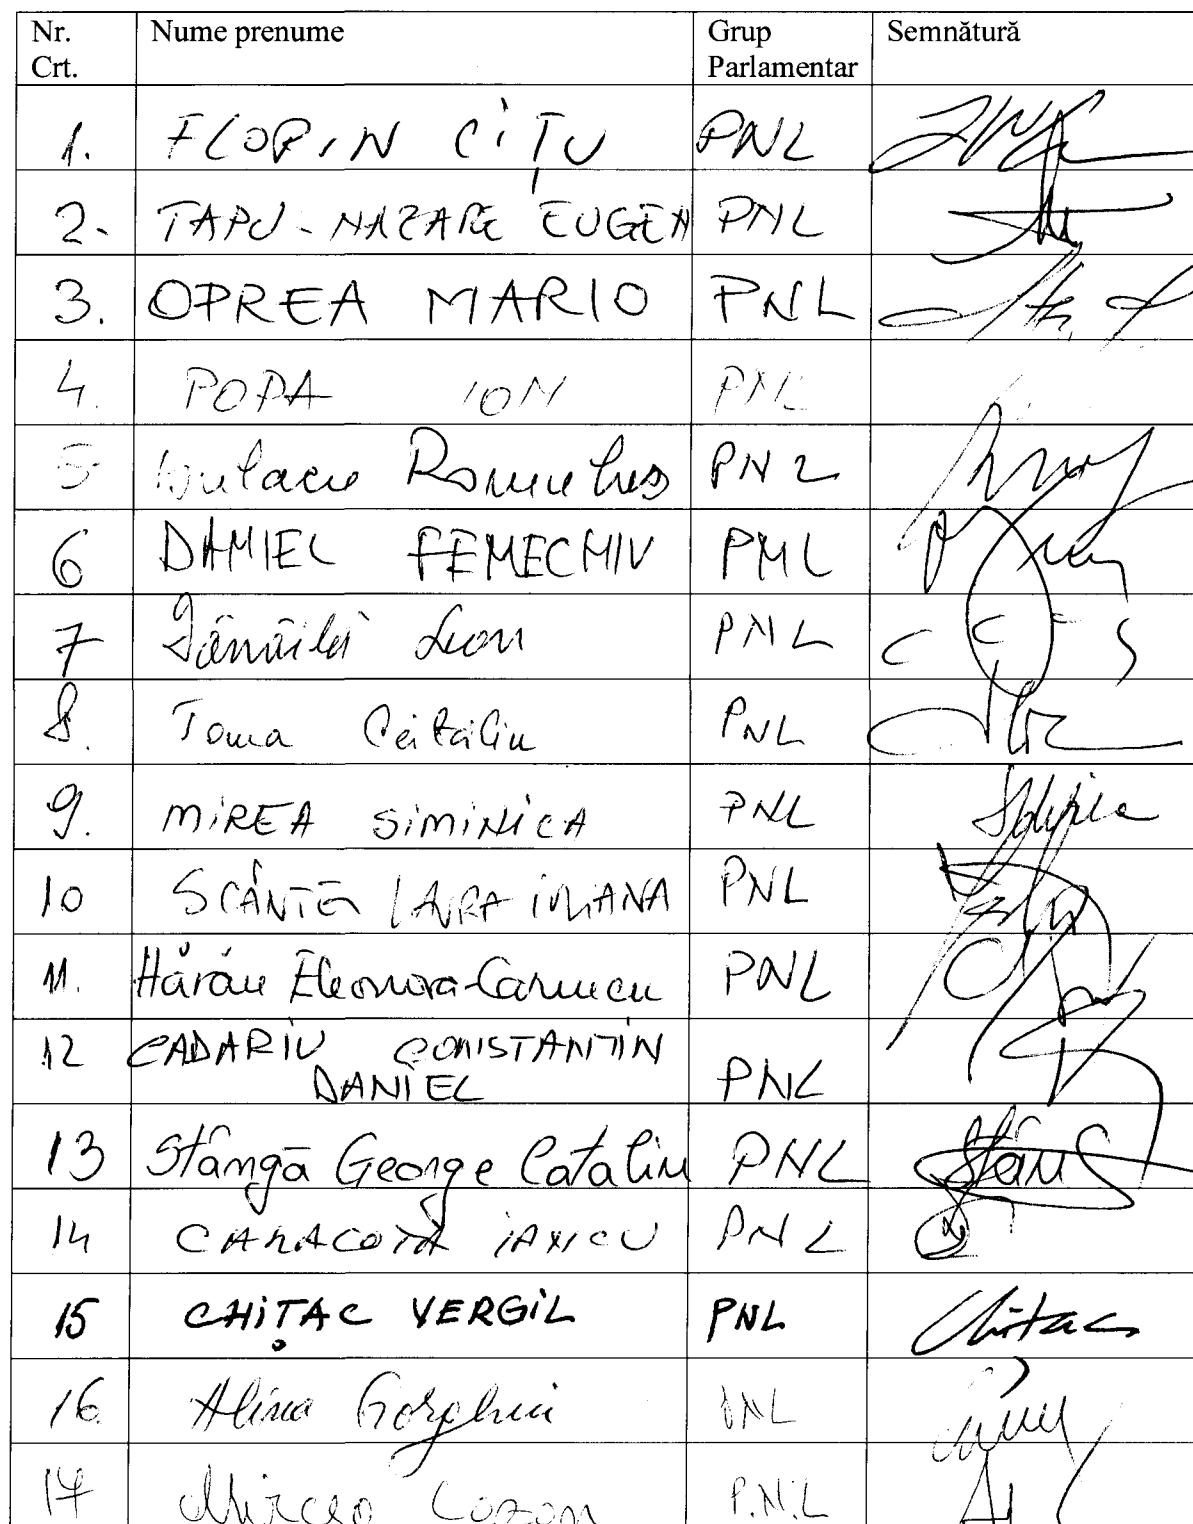 Nr. Crt. Nume prenume Grup Parlamentar Semnătură
1. FLORIN CÎŢU PNL
2. ŢAPU-NAZARE EUGEN PNL
3. OPREA MARIO PNL
4. POPA ION PNL
5 Bulacu Romulus PNL
6 DANIEL FENECHIU PNL
7 Dănăilă Leon PNL
8. Toma Cătălin PNL
9. MIREA SIMINICA PNL
10 SCÂNTEI LAURA IULIANA PNL
11. Hărău Eleonora-Carmen PNL
12 CADARIU CONSTANTIN
DANIEL PNL
13 Stângă George Catalin PNL Stâng
14 CARACOTA IANCU PNL
15 CHIŢAC VERGIL PNL Chitac
16 Alina Gorghiu PNL
17 Mircea P.N.L